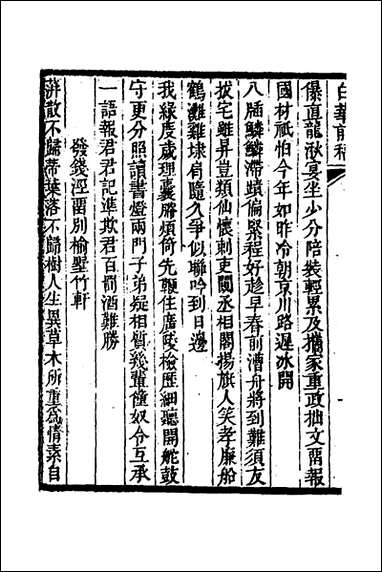 白華前稿
儤直龍湫宴坐少分陪裝輕累及攜家重政拙文留報
國材祇怕今年如昨冷朝京川路遲冰開
八牐鱗鱗滯蹟偏緊程好趁早春前漕舟將到難須友
拔宅雞昇豈類仙懷刺吏闌丞相閣揚旗人笑孝廉船
鶴灘雞埭肩隨久爭似聯吟到日邊
我緣度歲理囊勝煩倚先鞭住廣陵檢歷細聽開舵鼓
守更分照讀書燈兩門子弟疑相質幾輩僮奴令互承
一語報君君記準欺君百罰酒難勝
發錢涇留別榆墅竹軒
萍散不歸蒂葉落不歸樹人生異草木所重爲情素自